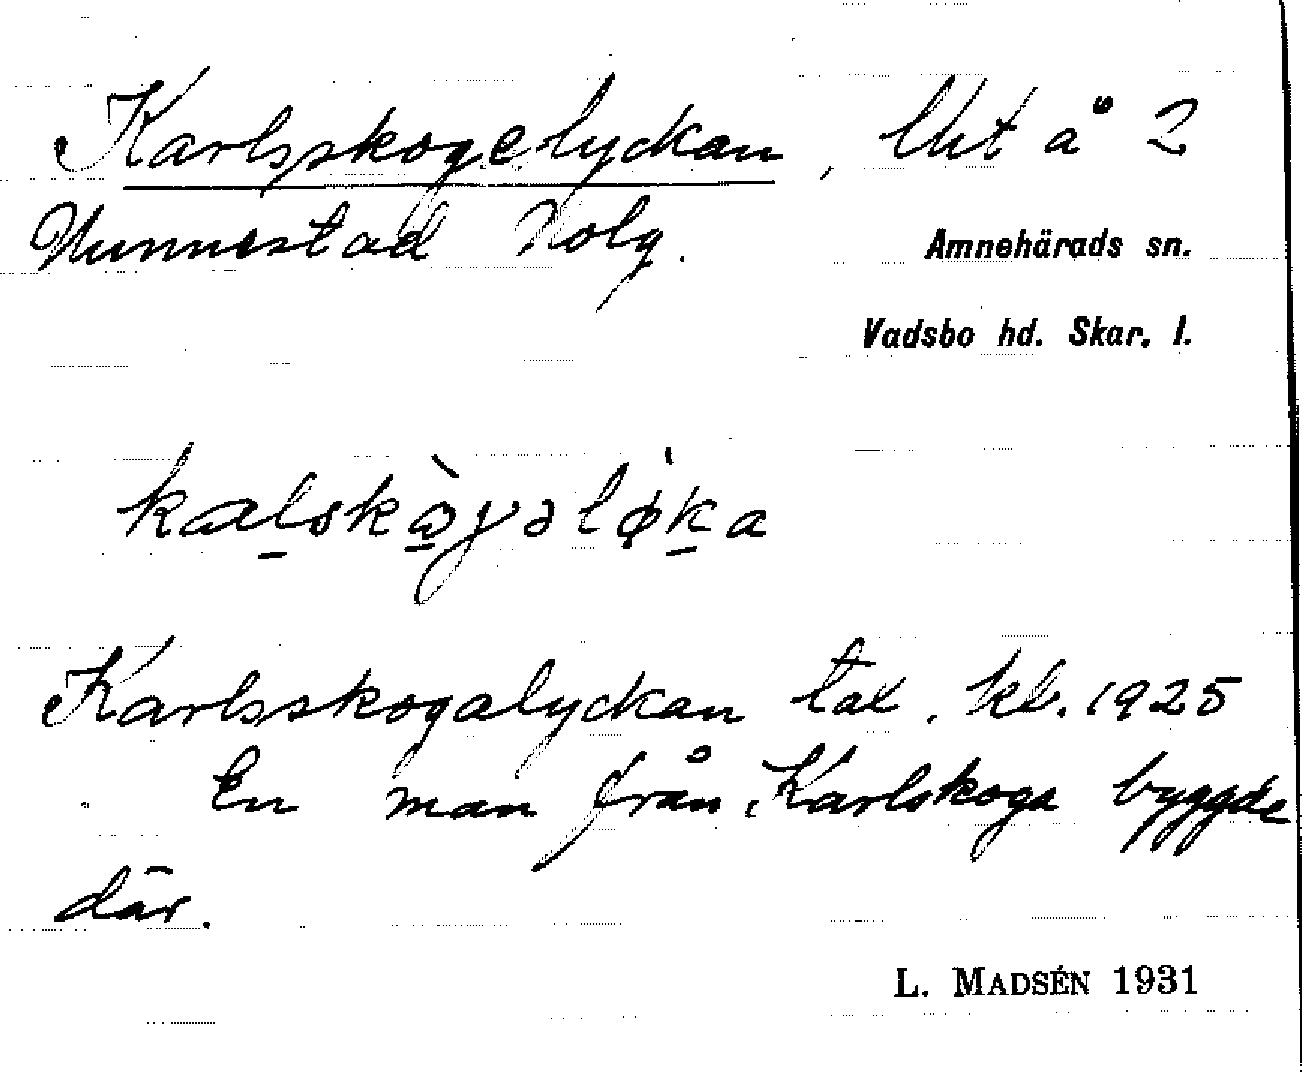 Karlsskogelyckan, lht å 2
Nunnestad Nolg.
Amnehärads sn.
Vadsbo hd. Skar. l.
kalskòγəløka
Karlsskogalyckan tax. kl. 1925
En man från Karlskoga byggde
där.
L. MADSÉN 1931